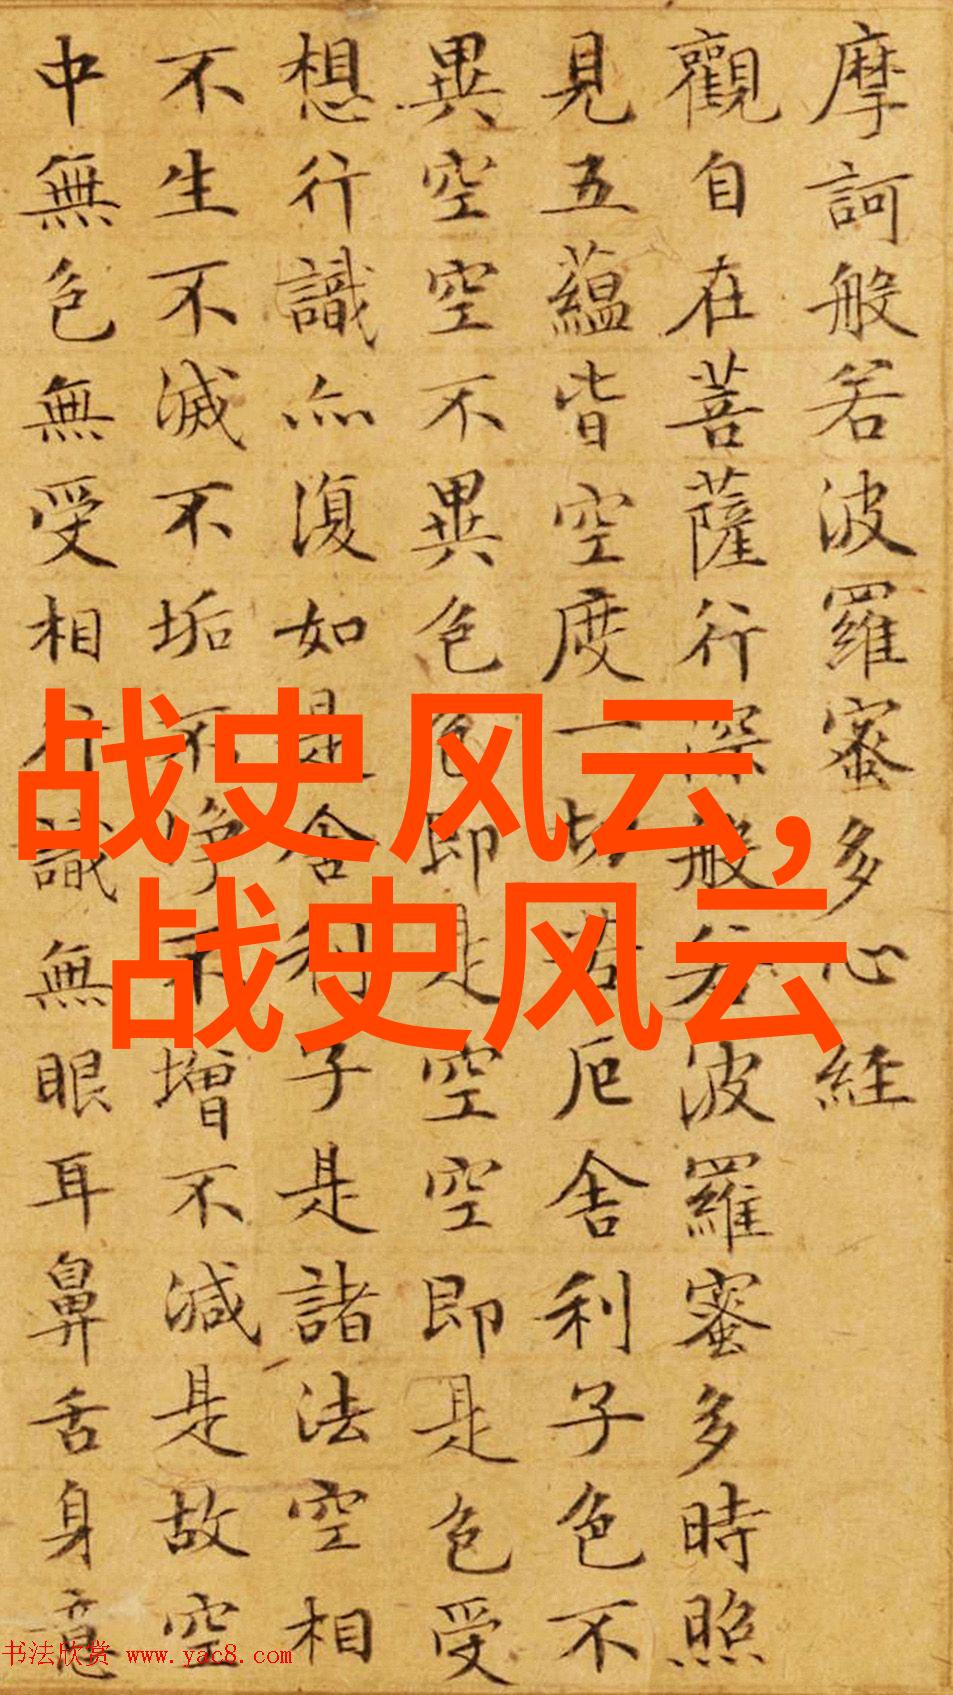 摩訶般若波羅蜜多心経
觀自在菩薩行深般若波羅蜜多時照
見五蘊皆空度一切苦厄舎利子色不
異空空不異色色即是空空即是色受
想行識亦復如是舎利子是諸法空相
不生不滅不垢不淨不增不減是故空
中無色無受相行識無眼耳鼻舌身意
战史风云,
战史风云
书法欣赏 www.yac8.com